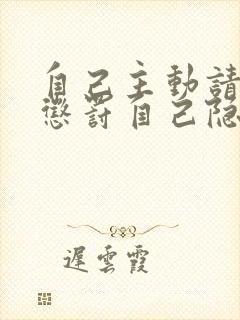 自己主動請
懲罰自己隐
遲雲霞